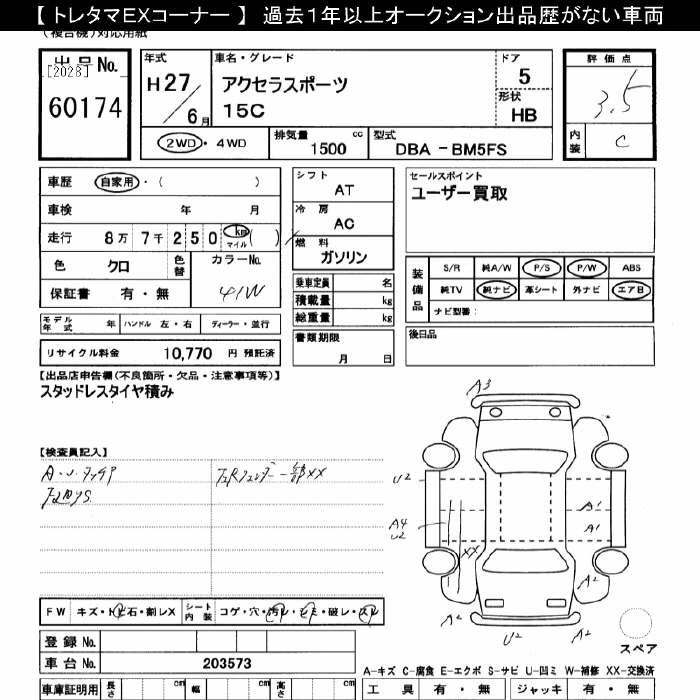 【 トレタマEXコーナー 】 過去1年以上オークション出品歴がない車両
(複合機)対応用紙
出品No.
[2028]
60174
年式
H27/6月
車名・グレード
アクセラスポーツ
15C
ドア
5
形状
HB
評価点
3.5
内装
C
2WD・4WD
排気量 1500 cc
型式 DBA -BM5FS
車歴 自家用・( )
車検 年 月
走行 8万7千250 km マイル( )
色 クロ 色替
カラーNo.
41W
保証書 有・無
モデル年式 年 ハンドル 左・右 ディーラー・並行
リサイクル料金 10,770 円 預託済
シフト
AT
冷房
AC
燃料
ガソリン
乗車定員 名
積載量 kg
総重量 kg
書類期限
月 日
セールスポイント
ユーザー買取
装備品
S/R 純A/W P/S P/W ABS
純TV 純ナビ 革シート 外ナビ エアB
ナビ型番:
後日品
【出品店申告欄(不良箇所・欠品・注意事項等)】
スタッドレスタイヤ積み
【検査員記入】
A・U
XX
A3
U2
A4
U2
XX
A1
A1
A2
A2
U2
A2
スペア
FW キズ・トビ石・割レX シート内装 コゲ・穴・汚レ・シミ・破レ・スレ
登録 No.
車台 No. 203573
A-キズ C-腐食 E-エクボ S-サビ U-凹ミ W-補修 XX-交換済
車庫証明用 長さ cm 幅 cm 高さ cm
工具 有・無 ジャッキ 有・無